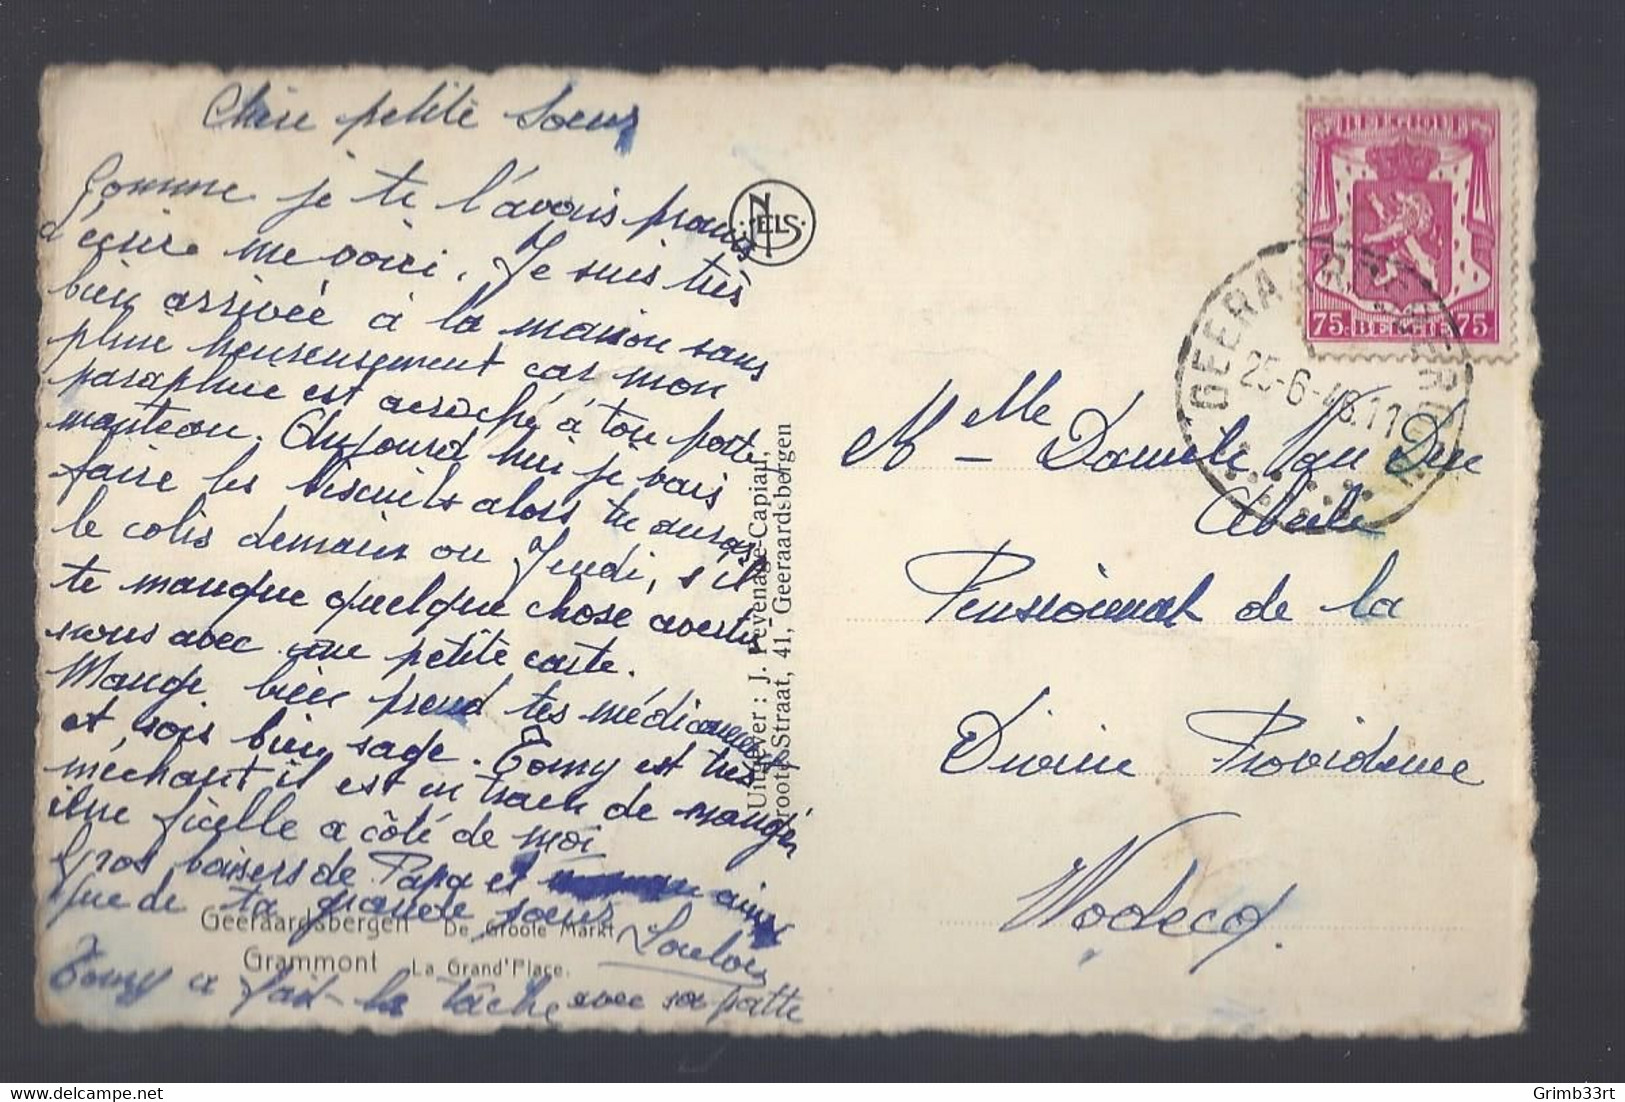 Chère petite Soeur
Comme je te l'avais promis
d'écrire me voici. Je suis très
bien arrivée à la maison sans
pluie heureusement car mon
parapluie est accroché à ton porte
manteau. Aujourd'hui je vais
faire les biscuits alors tu auras
le colis demain ou Jeudi, s'il
te manque quelque chose avertis
nous avec une petite carte.
Mange bien prend tes médicaments
et sois bien sage. Tomy est très
méchant il est en train de manger
une ficelle a côté de moi
Gros baisers de Papa et ainsi
que de ta grande soeur
Loulou
Tomy a fait la tâche avec sa patte
Geeraardsbergen De Groote Markt
Grammont La Grand'Place.
NELS
Uitgever: J. Pevenage-Capiau,
Groote Straat, 41, Geeraardsbergen
BELGIQUE
75c BELGIE 75c
GEERAARDSBERGEN
25-6-46.11
Melle Danielle Van Der
Pensionnat de la
Divine Providence
Wodecq.
Grimb33rt